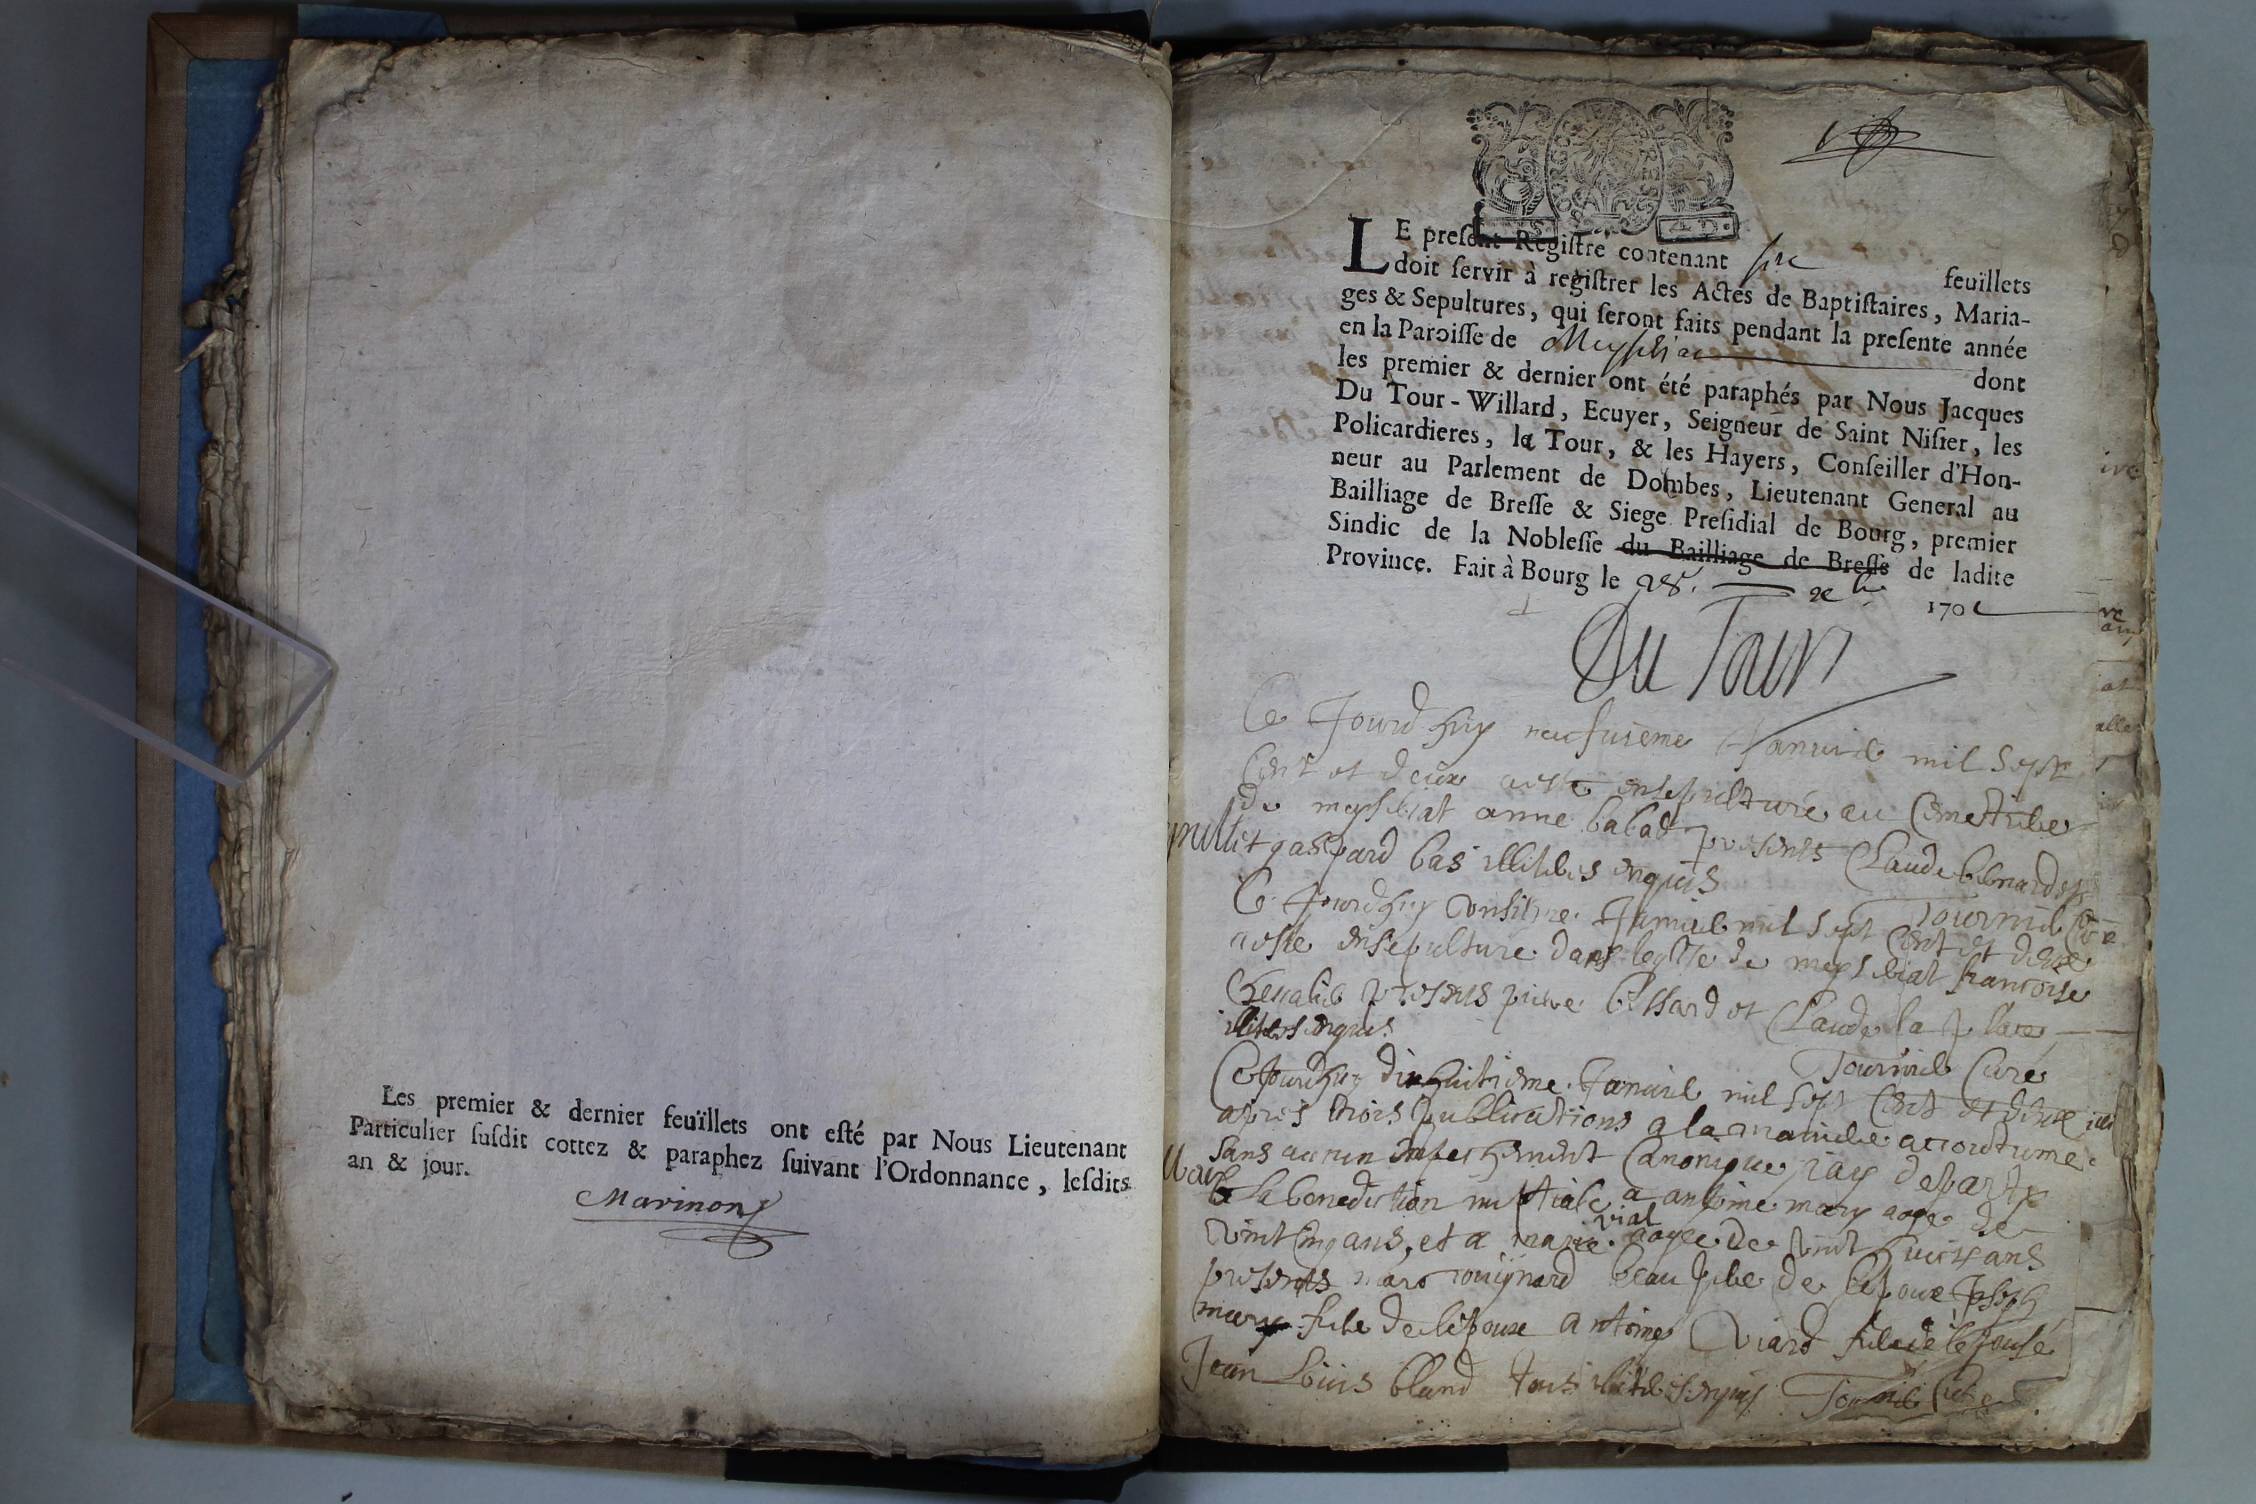 Les premier & dernier feuïllets ont esté par Nous Lieutenant
Particulier susdit cottez & paraphez suivant l'Ordonnance, lesdits
an & jour.
Marinon
LE present Registre contenant six feuïllets
doit servir à registrer les Actes de Baptistaires, Maria-
ges & Sepultures, qui seront faits pendant la presente année
en la Paroisse de Meysiriat dont
les premier & dernier ont été paraphés par Nous Jacques
Du Tour-Willard, Ecuyer, Seigneur de Saint Nisier, les
Policardieres, la Tour, & les Hayers, Conseiller d'Hon-
neur au Parlement de Dombes, Lieutenant General au
Bailliage de Bresse & Siege Presidial de Bourg, premier
Sindic de la Noblesse du Bailliage de Bresse de ladite
Province. Fait à Bourg le 28. 170
Du Tour
Ce Jourdhuy neufuieme Januier mil sept
Cent et deux a esté ensepulturé au Cimetiere
de meysiriat anne babad presents Claude
gaspard bas illiteres enquis
Ce Jourdhuy onsieme Januier mil sept Cent et deux
a esté ensepulture dans leglise de meysiriat francoise
Cheualier presents pierre billiard et Claude la place
illiteres enquis
Tournier Curé
Ce Jourdhuy dixhuitieme Januier mil sept Cent et deux
apres trois publications a la maniere accoutumé
sans aucun empechement Canonique jay departy
la benediction nuptiale a antoine mary agé de
vint Cinq ans, et a marie vial agee de vint huict ans
presents marc rouignard beau pere de lepoux Joseph
mary frere de lepoux antoine viard frere de lepouse
Jean Louis bland tous illiteres enquis Tournier Curé